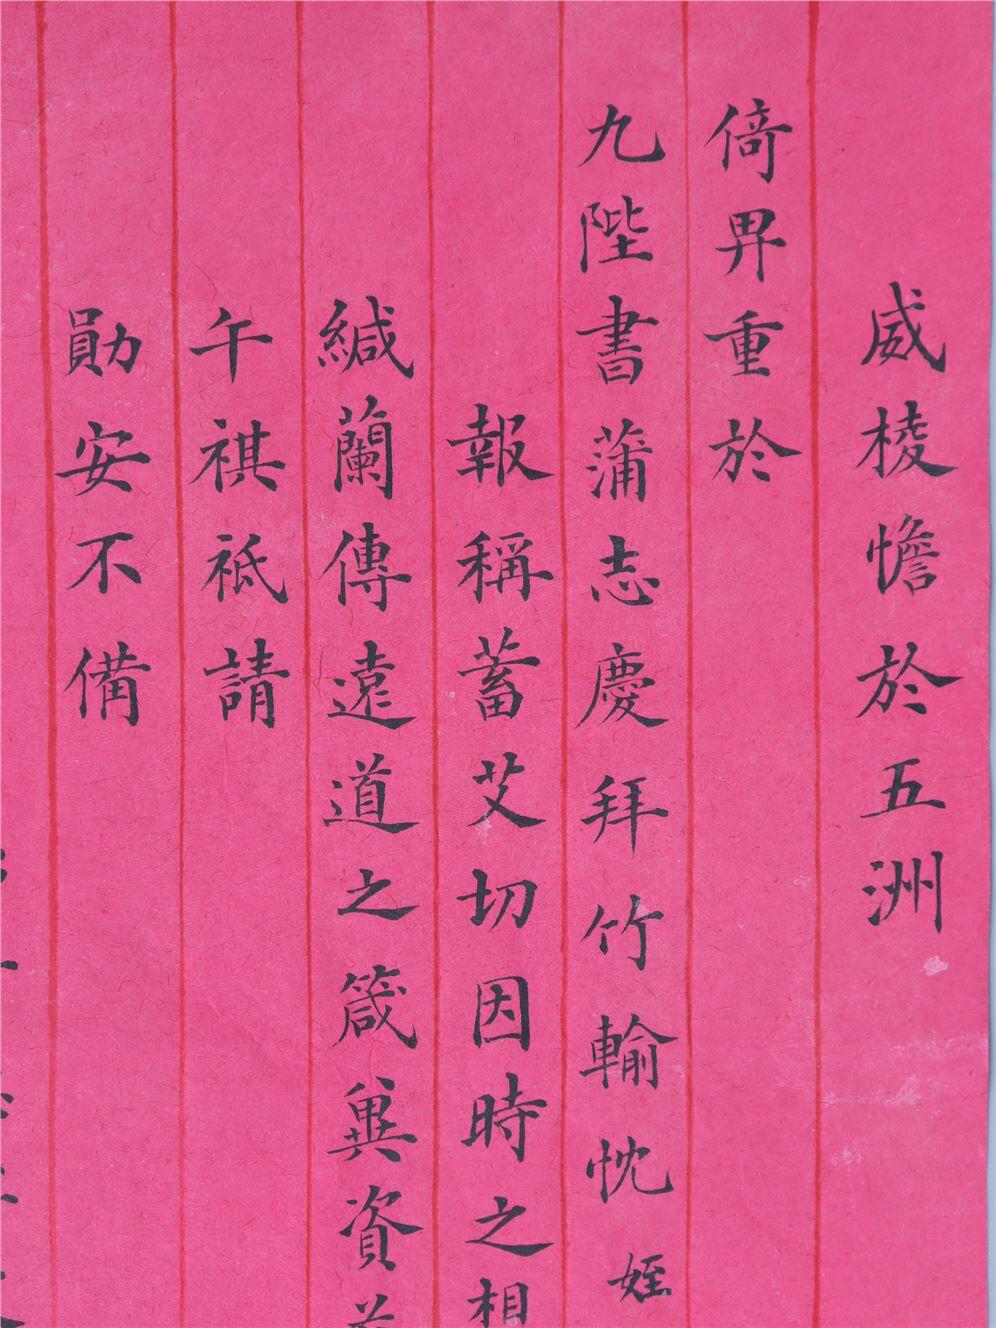 威棱憺於五洲
倚畀重於
九陛書蒲志慶拜竹輸忱姪
報稱蓄艾切因時之相
緘蘭傳遠道之箴冀資
午祺祗請
勛安不備